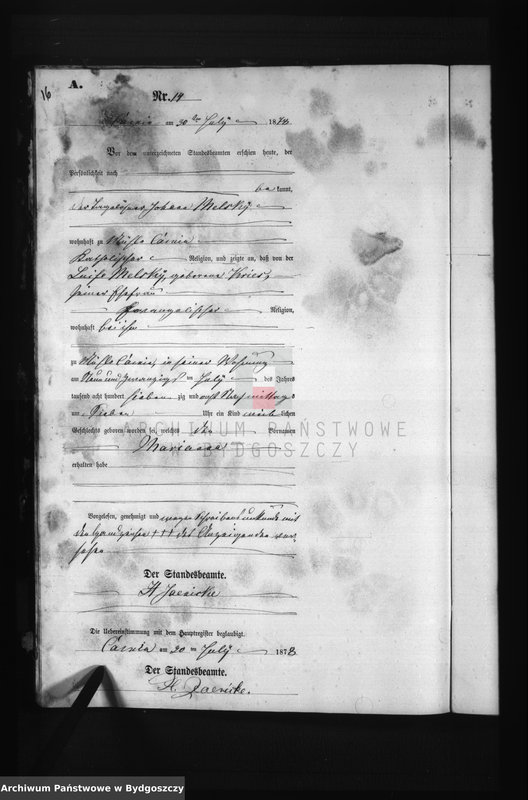 16
A.
Nr. 14
am 30ten July 1878
Vor dem unterzeichneten Standesbeamten erschien heute, der
Persönlichkeit nach
be kannt,
der Tagelöhner Johann Melsky
wohnhaft zu Mühle Camin
Katholischer Religion, und zeigte an, daß von der
Luise Melsky, geborene Kries,
seiner Ehefrau
Evangelischer Religion,
wohnhaft bei ihm
zu Mühle Camin, in seiner Wohnung
am Neun und zwanzigs ten July des Jahres
tausend acht hundert sieben zig und acht Nachmittags
um Sieben Uhr ein Kind weib lichen
Geschlechts geboren worden sei, welches Vornamen
Marianna
erhalten habe
Vorgelesen, genehmigt und wegen Schreibensunkunde mit
den Handzeichen +++ des Anzeigenden ver
sehen
Der Standesbeamte.
H Jaenicke
Die Uebereinstimmung mit dem Hauptregister beglaubigt.
Camin am 30 ten July 1878
Der Standesbeamte.
H. Jaenicke.
ARCHIWUM PAŃSTWOWE
W BYDGOSZCZY
Archiwum Państwowe w Bydgoszczy